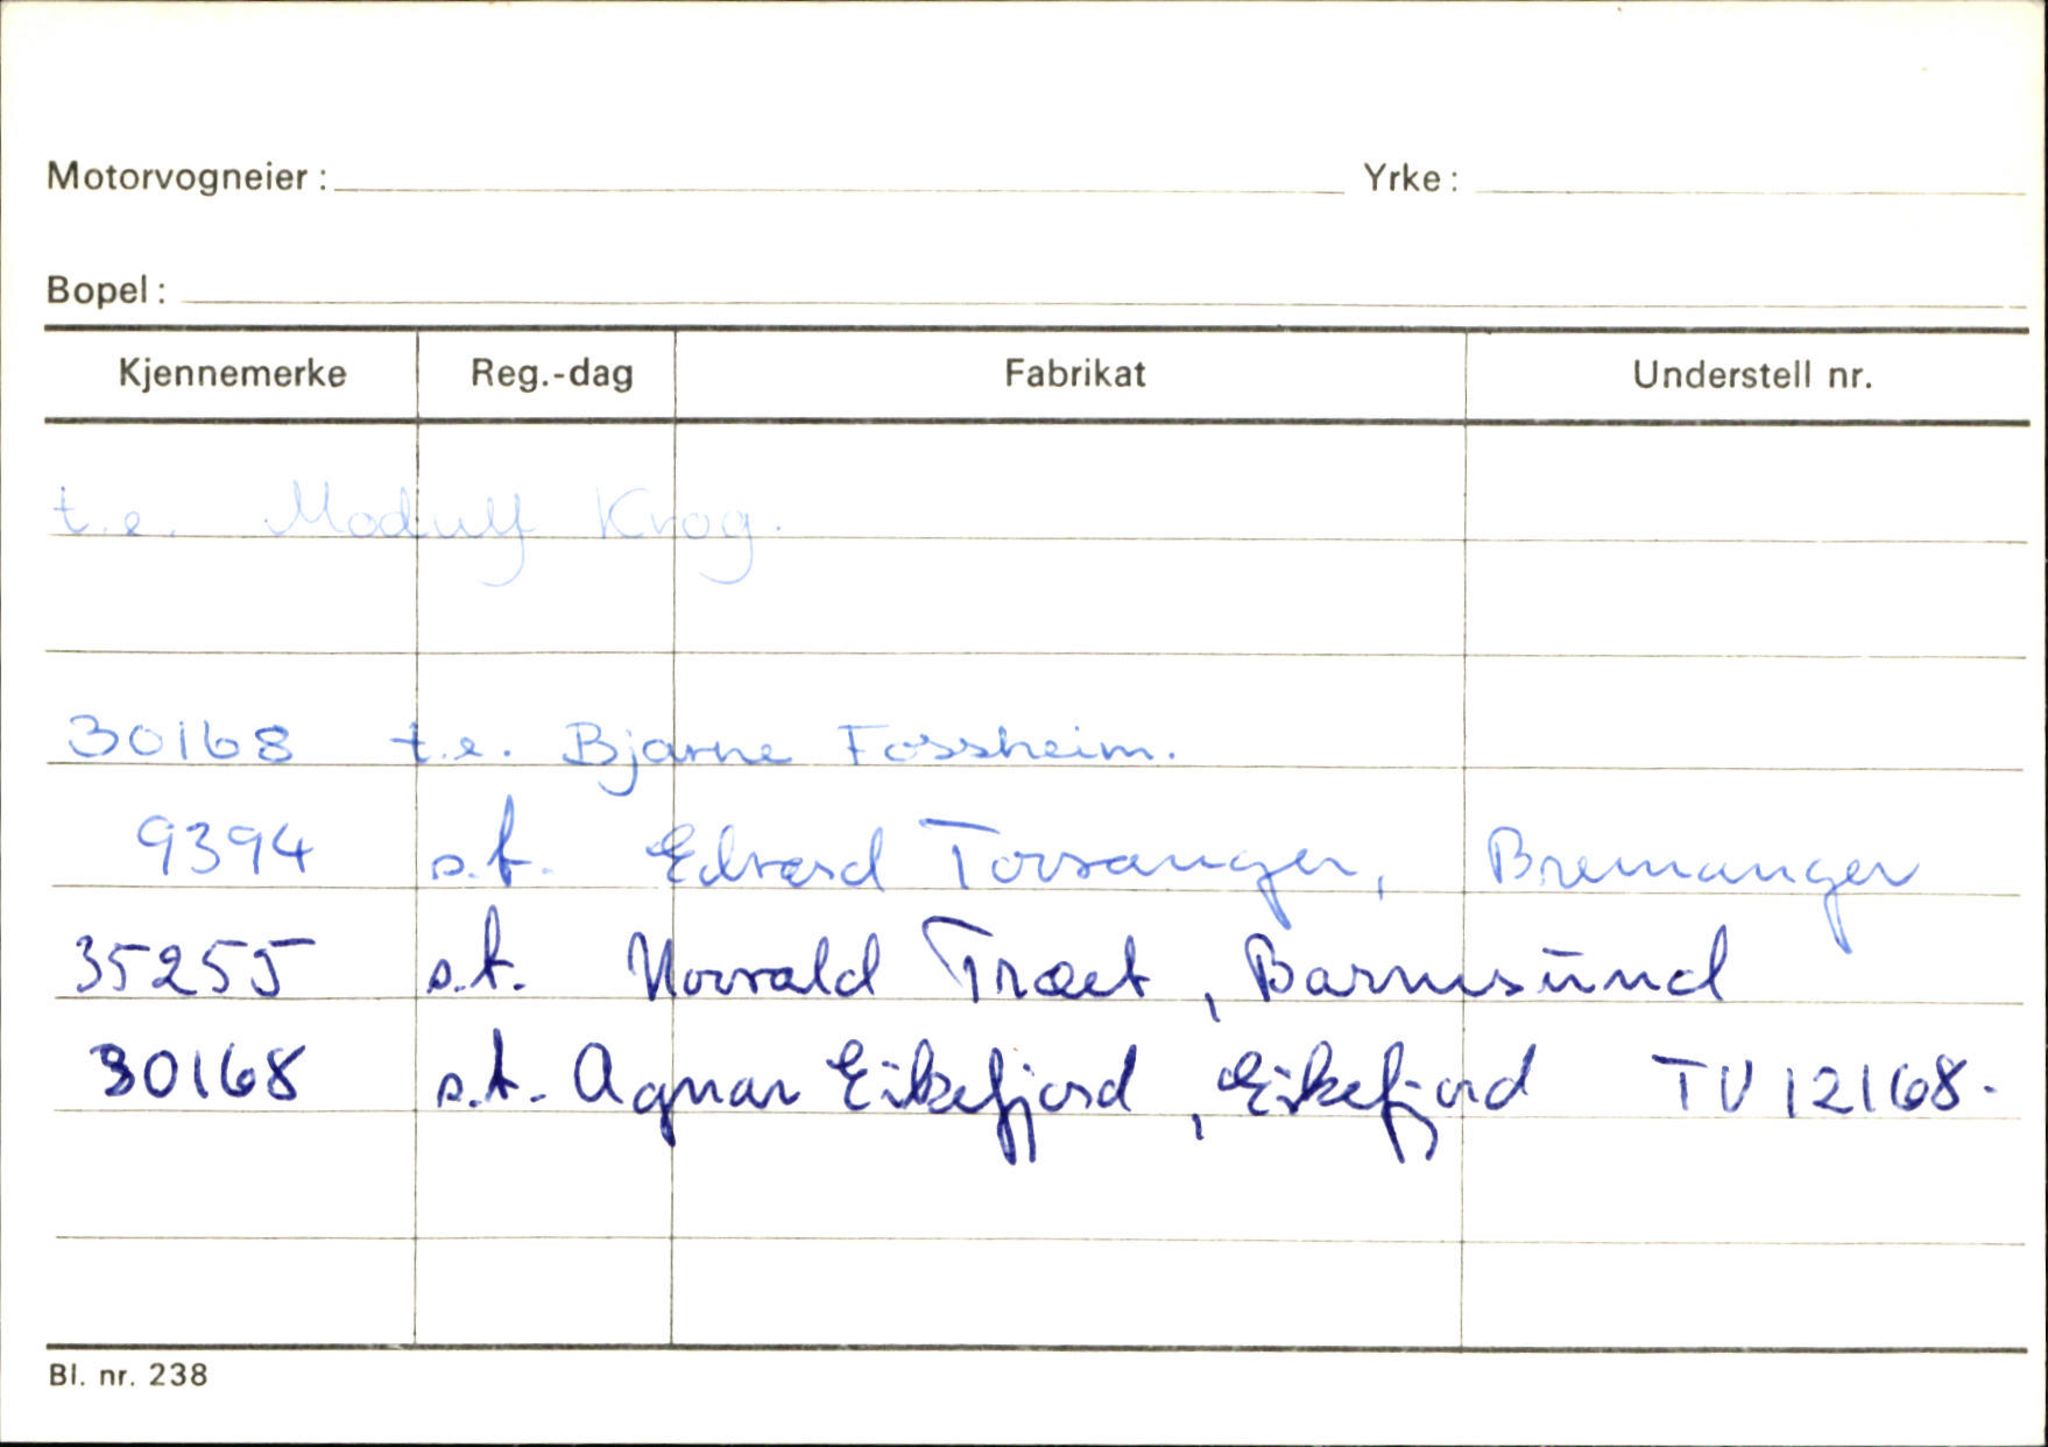 Motorvogneier : Yrke :
Bopel :
Kjennemerke Reg.-dag Fabrikat Understell nr.
t.e. Modulf Krog.
30168 t.e. Bjarne Fossheim.
9394 s.t. Edvard Torsanger, Bremanger
35255 s.t. Norvald Træet, Barmsund
30168 s.t. Agnar Eikefjord, Eikefjord TU 12168.
Bl. nr. 238